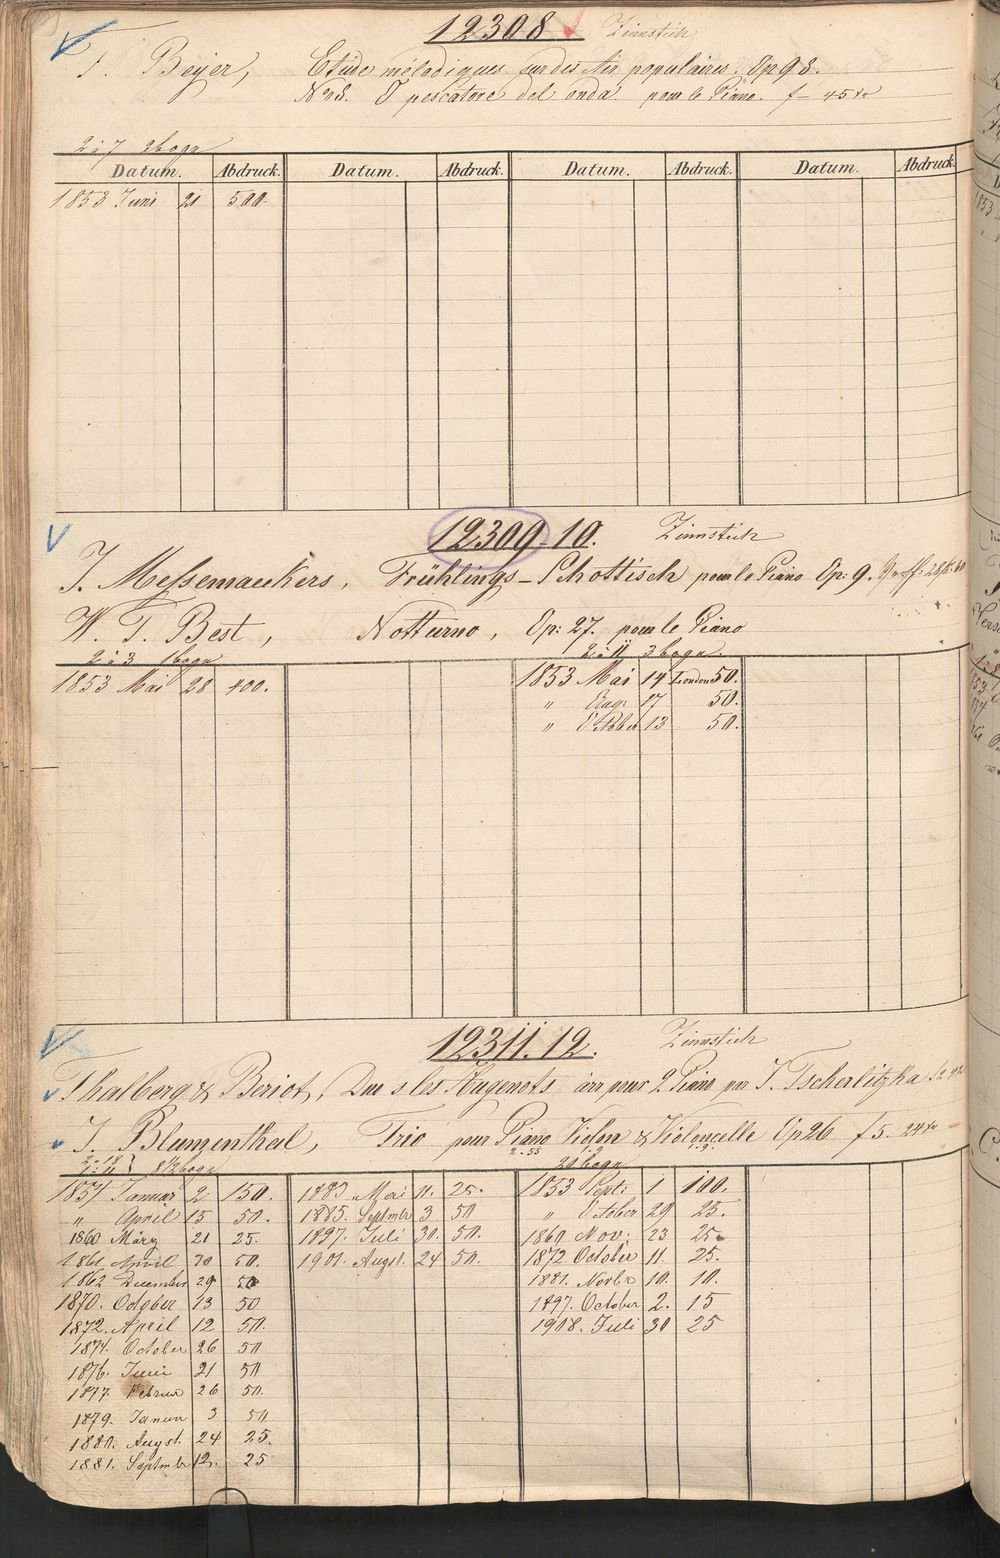 12308 Zinnstich
F. Beyer, Etude mélodiques sur des Air populaires. Op 98.
No 8. O pescatore del onda pour le Piano. f — 45 xr
2 à 7 2 bogn
Datum. Abdruck. Datum. Abdruck. Datum. Abdruck. Datum. Abdruck.
1853 Juni 21 500.
12309-10. Zinnstich
J. Messemaekers, Frühlings-Schottisch pour le Piano Op: 9.
W. T. Best, Notturno, Op: 27. pour le Piano
2 à 3 1 bogn
2 à 11 3 bogn.
1853 Mai 28 400.
1853 Mai 14 London 50.
" 17 50.
" October 13 50.
12311.12. Zinnstich
Thalberg & Beriot, Duo s les Hugenots arr pour 2 Piano par J. Tscherlitzka
J. Blumenthal, Trio pour Piano Violon & Violoncelle Op 26 f 5. 24 xr
8 1/2 bogn
20 bogn
1857 Januar 2 150.
" April 15 50.
1860 März 21 25.
1861 April 30 50.
1862 December 29 50
1870. October 13 50
1872. April 12 50.
1874. October 26 50
1876. Juni 21 50
1877. Februar 26 50.
1879. Januar 3 50
1880. Augst. 24 25.
1881. Septmbr 12. 25
1883 Mai 11. 25.
1885. Septmbr 3 50
1897. Juli 30. 50.
1901. Augst. 24 50.
1853 Septr 1 100.
" October 29 25.
1869 Nov: 23 25.
1872 October 11 25.
1881. Novbr 10. 10.
1897. October 2. 15
1908. Juli 30 25